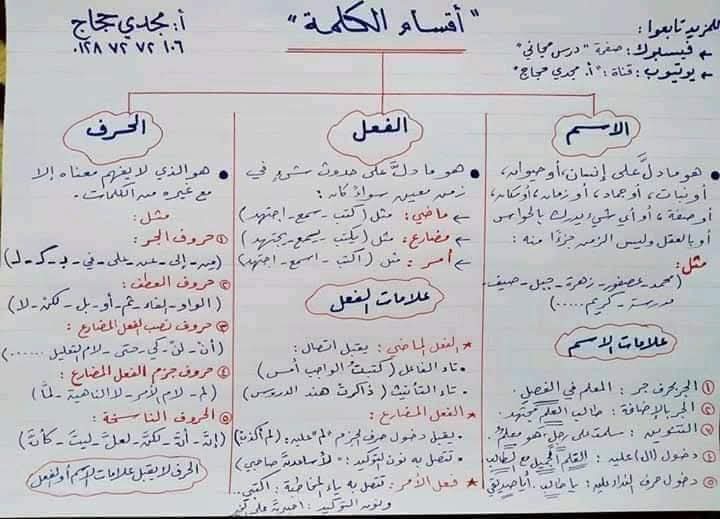 للمزيد تابعوا:
← فيسبوك: صفحة "درس مجاني"
← يوتيوب: قناة: "أ. مجدي حجاج"
"أقسام الكلمة"
أ: مجدي حجاج
٠١٢٨ ٧٢ ٧٢ ١٠٦
الاسم
● هو ما دلَّ على إنسان، أو حيوان،
أو نبات، أو جماد، أو زمان، أو مكان،
أو صفة، أو أي شيء يدرك بالحواس
أو بالعقل وليس الزمن جزءًا منه:
مثل:
(محمد - عصفور - زهرة - جبل - صيف -
مدرسة - كريم .....)
علامات الاسم
① الجر بحرف جر: المعلم في الفصل.
② الجر بالإضافة: طالب العلم مجتهد.
③ التنوين: سلمت على رجلٍ - هو معلمٌ.
④ دخول (ال) عليه: القلم الجميل مع الطالب
⑤ دخول حرف النداء عليه: يا طالب. أيا صديقي
الفعل
● هو ما دلَّ على حدوث شيء في
زمن معين سواءً كان:
← ماضي: مثل (كتب - سمع - اجتهد)
← مضارع: مثل (يكتب - يسمع - يجتهد)
← أمر: مثل (اكتب - اسمع - اجتهد)
علامات الفعل
★ الفعل الماضي: يقبل اتصال:
• تاء الفاعل (كتبتُ الواجب أمس)
• تاء التأنيث (ذاكرتْ هند الدروس)
★ الفعل المضارع:
• يقبل دخول حرف الجزم "لم" عليه: (لم أكذبْ)
• تتصل به نون التوكيد: "لأساعدنَّ صاحبي"
★ فعل الأمر: تتصل به ياء المخاطبة: اكتبي..
ونون التوكيد:
الحرف
● هو الذي لا يفهم معناه إلا
مع غيره من الكلمات.
مثل:
① حروف الجر:
(من - إلى - عن - على - في - بـ - كـ - لـ)
② حروف العطف:
(الواو - الفاء - ثم - أو - بل - لكن - لا)
③ حروف نصب الفعل المضارع:
(أنْ - لنْ - كي - حتى - لام التعليل ......)
④ حروف جزم الفعل المضارع:
(لم - لام الأمر - لا الناهية - لمَّا)
⑤ الحروف الناسخة:
(إنَّ - أنَّ - لكنَّ - لعلَّ - ليتَ - كأنَّ)
الحرف لا يقبل علامات الاسم أو الفعل